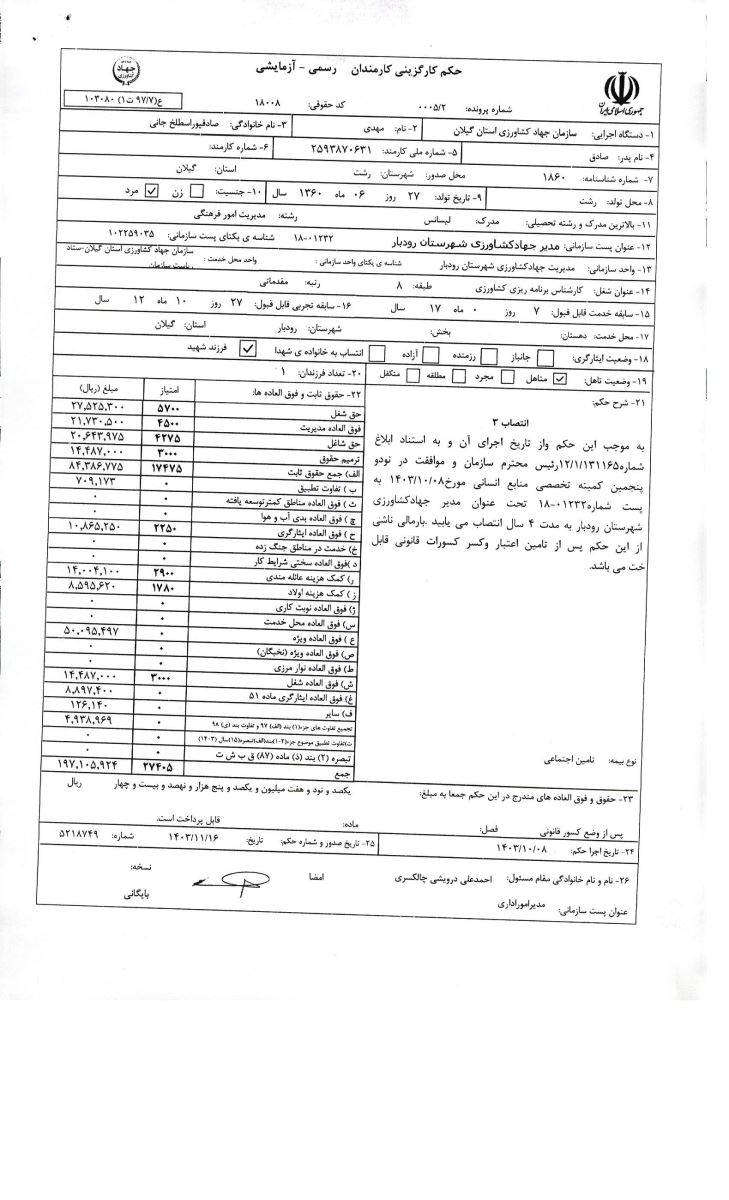 حکم کارگزینی کارمندان رسمی - آزمایشی
جمهوری اسلامی ایران
جهاد کشاورزی
شماره پرونده: ۰۰۰۵/۲ کد حقوقی: ۱۸۰۰۸ ع(۹۷/۷ ت۱) ۱۰۳۰۸۰
۱- دستگاه اجرایی: سازمان جهاد کشاورزی استان گیلان ۲- نام: مهدی ۳- نام خانوادگی: صادقپوراسطلخ جانی
۴- نام پدر: صادق ۵- شماره ملی کارمند: ۲۵۹۳۸۷۰۶۳۱ ۶- شماره کارمند:
۷- شماره شناسنامه: ۱۸۶۰ محل صدور: شهرستان: رشت استان: گیلان
۸- محل تولد: رشت ۹- تاریخ تولد: ۲۷ روز ۰۶ ماه ۱۳۶۰ سال ۱۰- جنسیت: زن مرد
۱۱- بالاترین مدرک و رشته تحصیلی: مدرک: لیسانس رشته: مدیریت امور فرهنگی
۱۲- عنوان پست سازمانی: مدیر جهادکشاورزی شهرستان رودبار ۱۸-۰۱۲۳۲ شناسه ی یکتای پست سازمانی: ۱۰۲۲۵۹۰۳۵
۱۳- واحد سازمانی: مدیریت جهادکشاورزی شهرستان رودبار شناسه ی یکتای واحد سازمانی: واحد محل خدمت: سازمان جهاد کشاورزی استان گیلان-ستاد
ریاست سازمان
۱۴- عنوان شغل: کارشناس برنامه ریزی کشاورزی طبقه: ۸ رتبه: مقدماتی
۱۵- سابقه خدمت قابل قبول: ۷ روز ۰ ماه ۱۷ سال ۱۶- سابقه تجربی قابل قبول: ۲۷ روز ۱۰ ماه ۱۲ سال
۱۷- محل خدمت: دهستان: بخش: شهرستان: رودبار استان: گیلان
۱۸- وضعیت ایثارگری: جانباز رزمنده آزاده انتساب به خانواده ی شهدا فرزند شهید
۱۹- وضعیت تاهل: متاهل مجرد مطلقه متکفل ۲۰- تعداد فرزندان: ۱
۲۱- شرح حکم:
انتصاب ۳
به موجب این حکم واز تاریخ اجرای آن و به استناد ابلاغ
شماره۱۲/۱/۱۳۱۱۶۵رئیس محترم سازمان و موافقت در نودو
پنجمین کمیته تخصصی منابع انسانی مورخ۱۴۰۳/۱۰/۰۸ به
پست شماره۰۱۲۳۲-۱۸ تحت عنوان مدیر جهادکشاورزی
شهرستان رودبار به مدت ۴ سال انتصاب می یابید .بارمالی ناشی
از این حکم پس از تامین اعتبار وکسر کسورات قانونی قابل
خت می باشد.
نوع بیمه: تامین اجتماعی
۲۲- حقوق ثابت و فوق العاده ها: امتیاز مبلغ (ریال)
حق شغل ۵۷۰۰ ۲۷,۵۲۵,۳۰۰
فوق العاده مدیریت ۴۵۰۰ ۲۱,۷۳۰,۵۰۰
حق شاغل ۴۲۷۵ ۲۰,۶۴۳,۹۷۵
ترمیم حقوق ۳۰۰۰ ۱۴,۴۸۷,۰۰۰
الف) جمع حقوق ثابت ۱۷۴۷۵ ۸۴,۳۸۶,۷۷۵
ب ) تفاوت تطبیق ۰ ۷۰۹,۱۷۳
ث ) فوق العاده مناطق کمترتوسعه یافته ۰ ۰
چ ) فوق العاده بدی آب و هوا ۰ ۰
ح ) فوق العاده ایثارگری ۲۲۵۰ ۱۰,۸۶۵,۲۵۰
خ) خدمت در مناطق جنگ زده ۰ ۰
د )فوق العاده سختی شرایط کار ۰ ۰
ر) کمک هزینه عائله مندی ۲۹۰۰ ۱۴,۰۰۴,۱۰۰
ز ) کمک هزینه اولاد ۱۷۸۰ ۸,۵۹۵,۶۲۰
ژ) فوق العاده نوبت کاری ۰ ۰
س) فوق العاده محل خدمت ۰ ۰
ع ) فوق العاده ویژه ۰ ۵۰,۰۹۵,۴۹۷
ص) فوق العاده ویژه (نخبگان) ۰ ۰
ط) فوق العاده نوار مرزی ۰ ۰
ش) فوق العاده شغل ۳۰۰۰ ۱۴,۴۸۷,۰۰۰
غ) فوق العاده ایثارگری ماده ۵۱ ۰ ۸,۸۹۷,۴۰۰
ف) سایر ۰ ۱۲۶,۱۴۰
تجمیع تفاوت های جزء(۱) بند (الف) ۹۷ و تفاوت بند (ی) ۹۸ ۰ ۴,۹۳۸,۹۶۹
ت)تفاوت تطبیق موضوع جزء(۲-۱)بند(الف)تبصره(۱۵)سال (۱۴۰۳) ۰ ۰
تبصره (۲) بند (د) ماده (۸۷) ق ب ش ت ۰ ۰
جمع ۲۷۴۰۵ ۱۹۷,۱۰۵,۹۲۴
۲۳- حقوق و فوق العاده های مندرج در این حکم جمعا به مبلغ: یکصد و نود و هفت میلیون و یکصد و پنج هزار و نهصد و بیست و چهار ریال
پس از وضع کسور قانونی فصل: ماده: قابل پرداخت است.
۲۴- تاریخ اجرا حکم: ۱۴۰۳/۱۰/۰۸ ۲۵- تاریخ صدور و شماره حکم: تاریخ: ۱۴۰۳/۱۱/۱۶ شماره: ۵۲۱۸۷۴۹
۲۶- نام و نام خانوادگی مقام مسئول: احمدعلی درویشی چالکسری امضا نسخه:
عنوان پست سازمانی: مدیراموراداری بایگانی